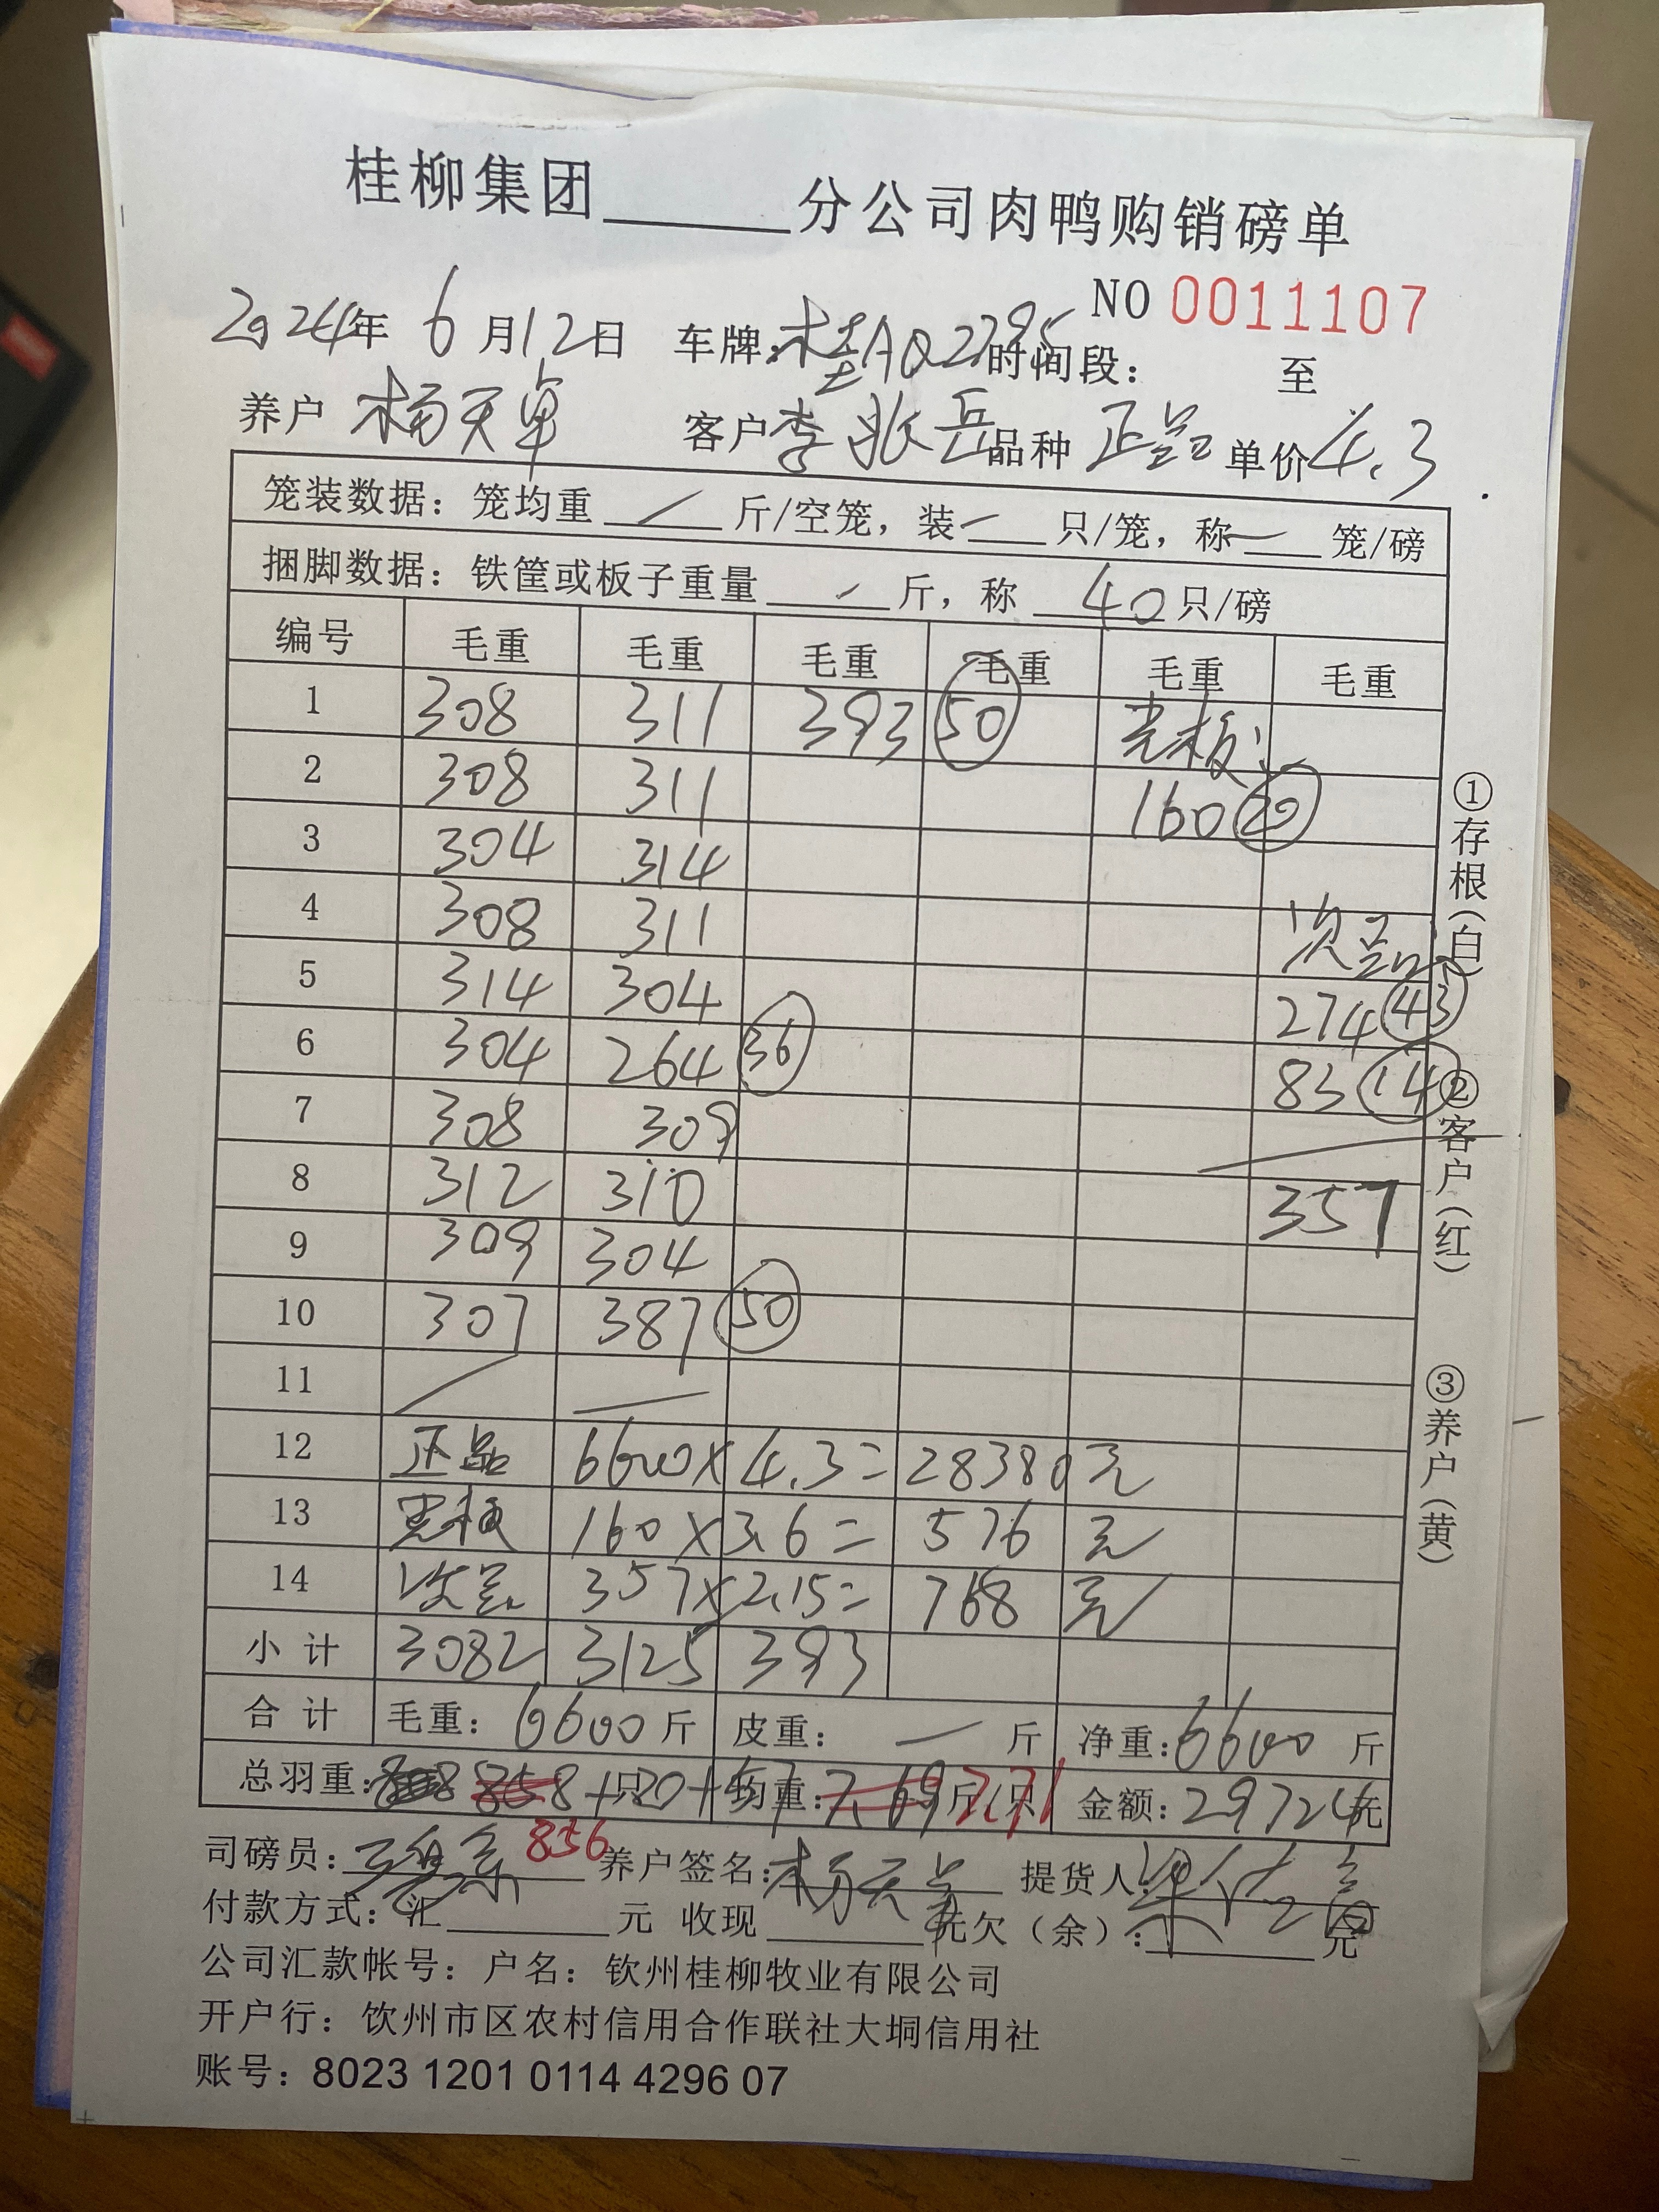 桂柳集团______分公司肉鸭购销磅单
NO 0011107
2024年 6 月12日 车牌:桂AQ2795 时间段: 至
养户 杨天卓 客户 李张岳 品种 正品 单价 4.3
笼装数据:笼均重 / 斤/空笼,装 — 只/笼,称 — 笼/磅
捆脚数据:铁筐或板子重量 / 斤,称 40 只/磅
编号 毛重 毛重 毛重 毛重 毛重 毛重
1 308 311 393 50 光板:
2 308 311 160 20
3 304 314
4 308 311 次品
5 314 304 274 43
6 304 264 36 83 14
7 308 309
8 312 310 357
9 309 304
10 307 387 50
11 / —
12 正品 6600× 4.3= 28380 元
13 光板 160× 3.6= 576 元
14 次品 357× 2.15= 768 元
小计 3082 3125 393
合计 毛重: 6600 斤 皮重: — 斤 净重:6600 斤
总羽重: 858+20+57 只 均重:7.69 斤/只 7.71 金额:29724元
856
司磅员: 养户签名:杨天卓 提货人:
付款方式:汇______元 收现______元欠(余):______元
公司汇款帐号:户名:钦州桂柳牧业有限公司
开户行:饮州市区农村信用合作联社大垌信用社
账号:8023 1201 0114 4296 07
①存根(白)
②客户(红)
③养户(黄)